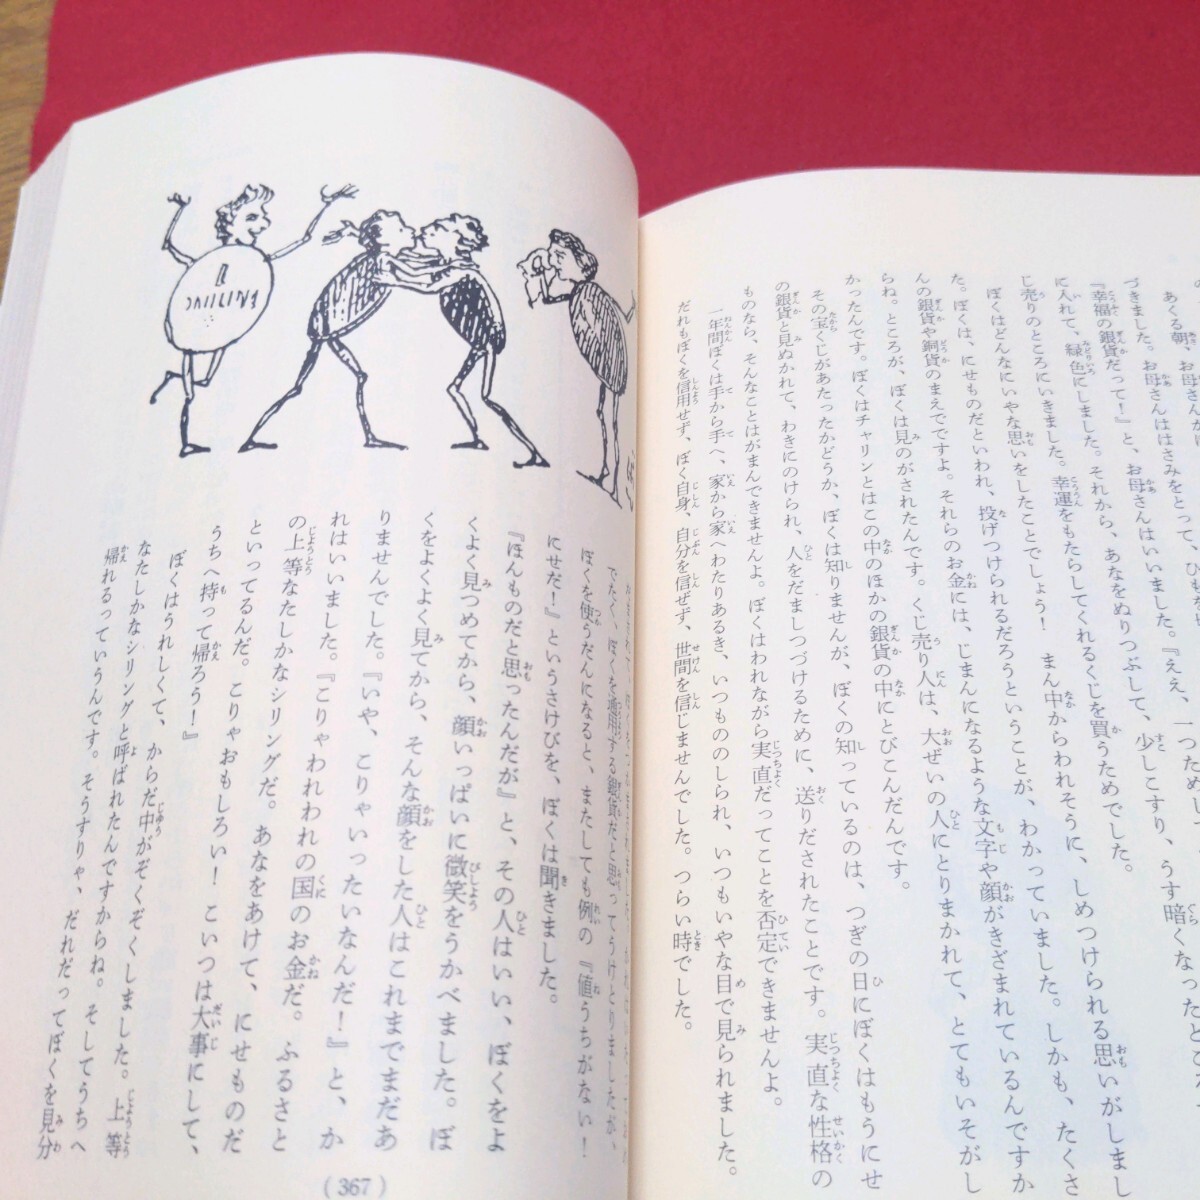 あくる朝、お母さんが
づきました。お母さんははさみをとって、ひも
『幸福の銀貨だって!』と、お母さんはいいました。『ええ、一つため
に入れて、緑色にしました。それから、あなをぬりつぶして、少しこすり、うす暗くなったとこ
じ売りのところにいきました。幸運をもたらしてくれるくじを買うためでした。
ぼくはどんなにいやな思いをしたことでしょう! まん中からわれそうに、しめつけられる思いがしまし
た。ぼくは、にせものだといわれ、投げつけられるだろうということが、わかっていました。しかも、たくさ
んの銀貨や銅貨のまえでですよ。それらのお金には、じまんになるような文字や顔がきざまれているんですか
らね。ところが、ぼくは見のがされたんです。くじ売り人は、大ぜいの人にとりまかれて、とてもいそがし
かったんです。ぼくはチャリンとはこの中のほかの銀貨の中にとびこんだんです。
その宝くじがあたったかどうか、ぼくは知りませんが、ぼくの知っているのは、つぎの日にぼくはもうにせ
の銀貨と見ぬかれて、わきにのけられ、人をだましつづけるために、送りだされたことです。実直な性格の
ものなら、そんなことはがまんできませんよ。ぼくはわれながら実直だってことを否定できませんよ。
一年間ぼくは手から手へ、家から家へわたりあるき、いつもののしられ、いつもいやな目で見られました。
だれもぼくを信用せず、ぼく自身、自分を信ぜず、世間を信じませんでした。つらい時でした。
でたく、ぼくを通用する銀貨だと思ってうけとりましたが、
ぼくを使うだんになると、またしても例の『値うちがない!
にせだ!』というさけびを、ぼくは聞きました。
『ほんものだと思ったんだが』と、その人はいい、ぼくをよ
くよく見つめてから、顔いっぱいに微笑をうかべました。ぼ
くをよくよく見てから、そんな顔をした人はこれまでまだあ
りませんでした。『いや、こりゃいったいなんだ!』と、か
れはいいました。『こりゃわれわれの国のお金だ。ふるさと
の上等なたしかなシリングだ。あなをあけて、にせものだ
といってるんだ。こりゃおもしろい! こいつは大事にして、
うちへ持って帰ろう!』
ぼくはうれしくて、からだ中がぞくぞくしました。上等
なたしかなシリングと呼ばれたんですからね。そしてうちへ
帰れるっていうんです。そうすりゃ、だれだってぼくを見分
(367)